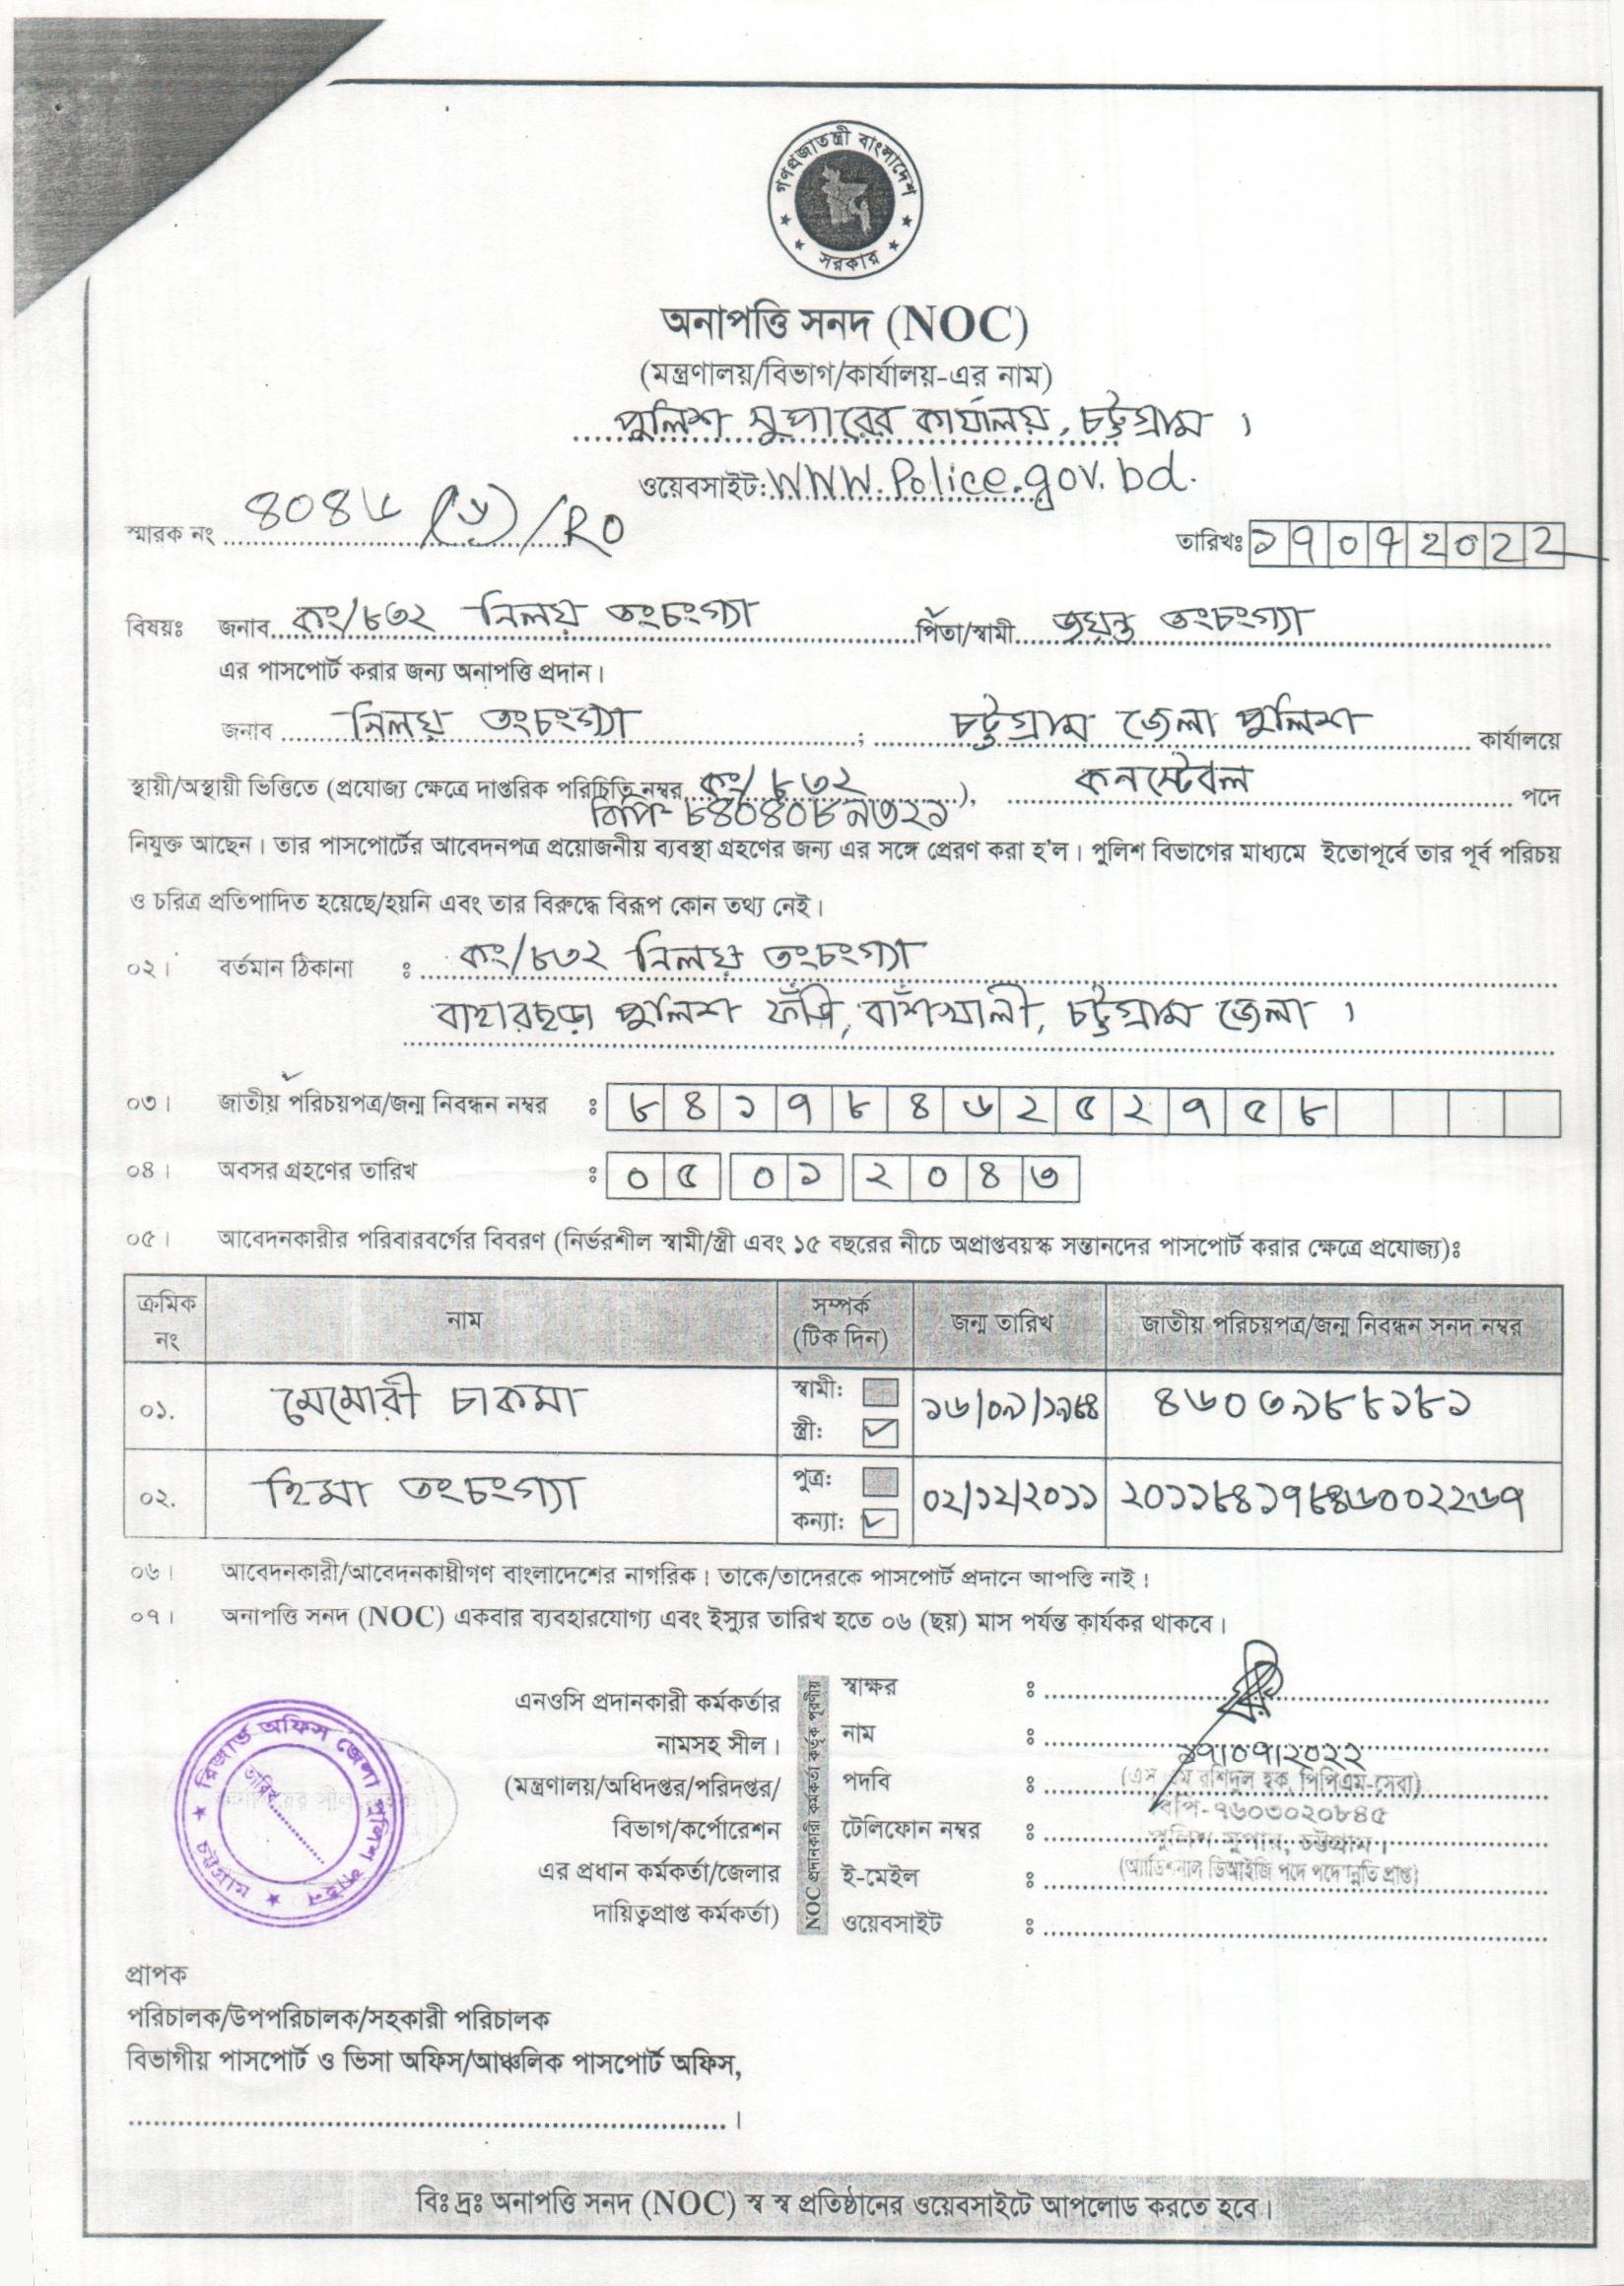 গণপ্রজাতন্ত্রী বাংলাদেশ
সরকার
অনাপত্তি সনদ (NOC)
(মন্ত্রণালয়/বিভাগ/কার্যালয়-এর নাম)
পুলিশ সুপারের কার্যালয়, চট্টগ্রাম।
ওয়েবসাইট: WWW.Police.gov.bd.
স্মারক নং ৪০৪৬ /RO
তারিখঃ ১৭০৭২০২২
বিষয়ঃ জনাব কং/৮৩২ নিলয় তংচংগ্যা পিতা/স্বামী জয়ন্ত তংচংগ্যা
এর পাসপোর্ট করার জন্য অনাপত্তি প্রদান।
জনাব নিলয় তংচংগ্যা ; চট্টগ্রাম জেলা পুলিশ কার্যালয়ে
স্থায়ী/অস্থায়ী ভিত্তিতে (প্রযোজ্য ক্ষেত্রে দাপ্তরিক পরিচিতি নম্বর কং/৮৩২ ), কনস্টেবল পদে
বিপি- ৮৪০৪০৮৯৩২১
নিযুক্ত আছেন। তার পাসপোর্টের আবেদনপত্র প্রয়োজনীয় ব্যবস্থা গ্রহণের জন্য এর সঙ্গে প্রেরণ করা হ'ল। পুলিশ বিভাগের মাধ্যমে ইতোপূর্বে তার পূর্ব পরিচয়
ও চরিত্র প্রতিপাদিত হয়েছে/হয়নি এবং তার বিরুদ্ধে বিরূপ কোন তথ্য নেই।
০২। বর্তমান ঠিকানা : কং/৮৩২ নিলয় তংচংগ্যা
বাহারছড়া পুলিশ ফাঁড়ি, বাঁশখালী, চট্টগ্রাম জেলা।
০৩। জাতীয় পরিচয়পত্র/জন্ম নিবন্ধন নম্বর ঃ ৮৪১৭৮৪৬২৫২৭৫৮
০৪। অবসর গ্রহণের তারিখ ঃ ০৫ ০১ ২০৪৩
০৫। আবেদনকারীর পরিবারবর্গের বিবরণ (নির্ভরশীল স্বামী/স্ত্রী এবং ১৫ বছরের নীচে অপ্রাপ্তবয়স্ক সন্তানদের পাসপোর্ট করার ক্ষেত্রে প্রযোজ্য)ঃ
ক্রমিক নং নাম সম্পর্ক (টিক দিন) জন্ম তারিখ জাতীয় পরিচয়পত্র/জন্ম নিবন্ধন সনদ নম্বর
০১. মেমোরী চাকমা স্বামী: স্ত্রী: ১৬/০৯/১৯৮৪ ৪৬০৩৯৮৮১৮১
০২. হিমা তংচংগ্যা পুত্র: কন্যা: ০২/১২/২০১১ ২০১১৮৪১৭৮৪৬০০২২৬৭
০৬। আবেদনকারী/আবেদনকারীগণ বাংলাদেশের নাগরিক। তাকে/তাদেরকে পাসপোর্ট প্রদানে আপত্তি নাই।
০৭। অনাপত্তি সনদ (NOC) একবার ব্যবহারযোগ্য এবং ইস্যুর তারিখ হতে ০৬ (ছয়) মাস পর্যন্ত কার্যকর থাকবে।
এনওসি প্রদানকারী কর্মকর্তার
নামসহ সীল।
(মন্ত্রণালয়/অধিদপ্তর/পরিদপ্তর/
বিভাগ/কর্পোরেশন
এর প্রধান কর্মকর্তা/জেলার
দায়িত্বপ্রাপ্ত কর্মকর্তা)
রিজার্ভ অফিস জেলা পুলিশ লাইন চট্টগ্রাম
তারিখ
NOC প্রদানকারী কর্মকর্তা কর্তৃক পূরণীয়
স্বাক্ষর ঃ
নাম ঃ ১৭/০৭/২০২২
পদবি ঃ (এস এম রশিদুল হক, পিপিএম-সেবা)
বিপি-৭৬০৩০২০৮৪৫
টেলিফোন নম্বর ঃ পুলিশ সুপার, চট্টগ্রাম।
ই-মেইল ঃ (অ্যাডিশনাল ডিআইজি পদে পদোন্নতি প্রাপ্ত)
ওয়েবসাইট ঃ
প্রাপক
পরিচালক/উপপরিচালক/সহকারী পরিচালক
বিভাগীয় পাসপোর্ট ও ভিসা অফিস/আঞ্চলিক পাসপোর্ট অফিস,
বিঃ দ্রঃ অনাপত্তি সনদ (NOC) স্ব স্ব প্রতিষ্ঠানের ওয়েবসাইটে আপলোড করতে হবে।